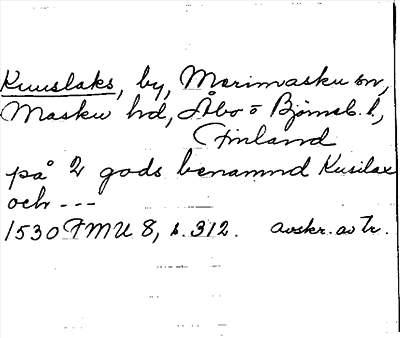 Kuuslaks, by, Merimasku sn,
Masku hd, Åbo o Björneb. l.,
Finland
på 2 gods benämnd Kusilax
och ---
1530 FMU 8, s. 312. avskr. av tr.